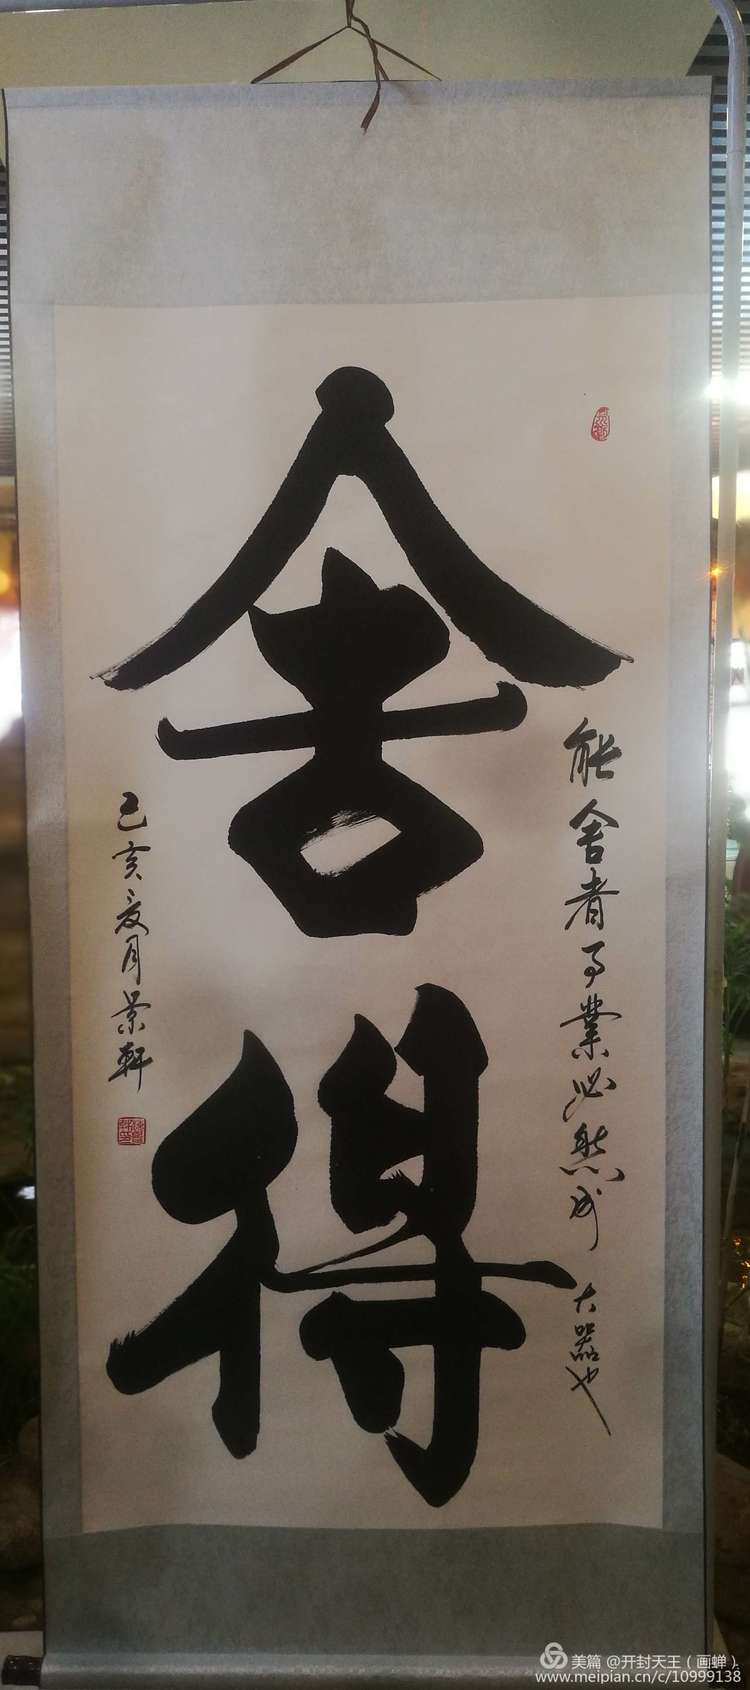 舍得
能舍者事業必然成大器也
己亥夏月景軒
美篇 @开封天王（画蝉）
www.meipian.cn/c/10999138